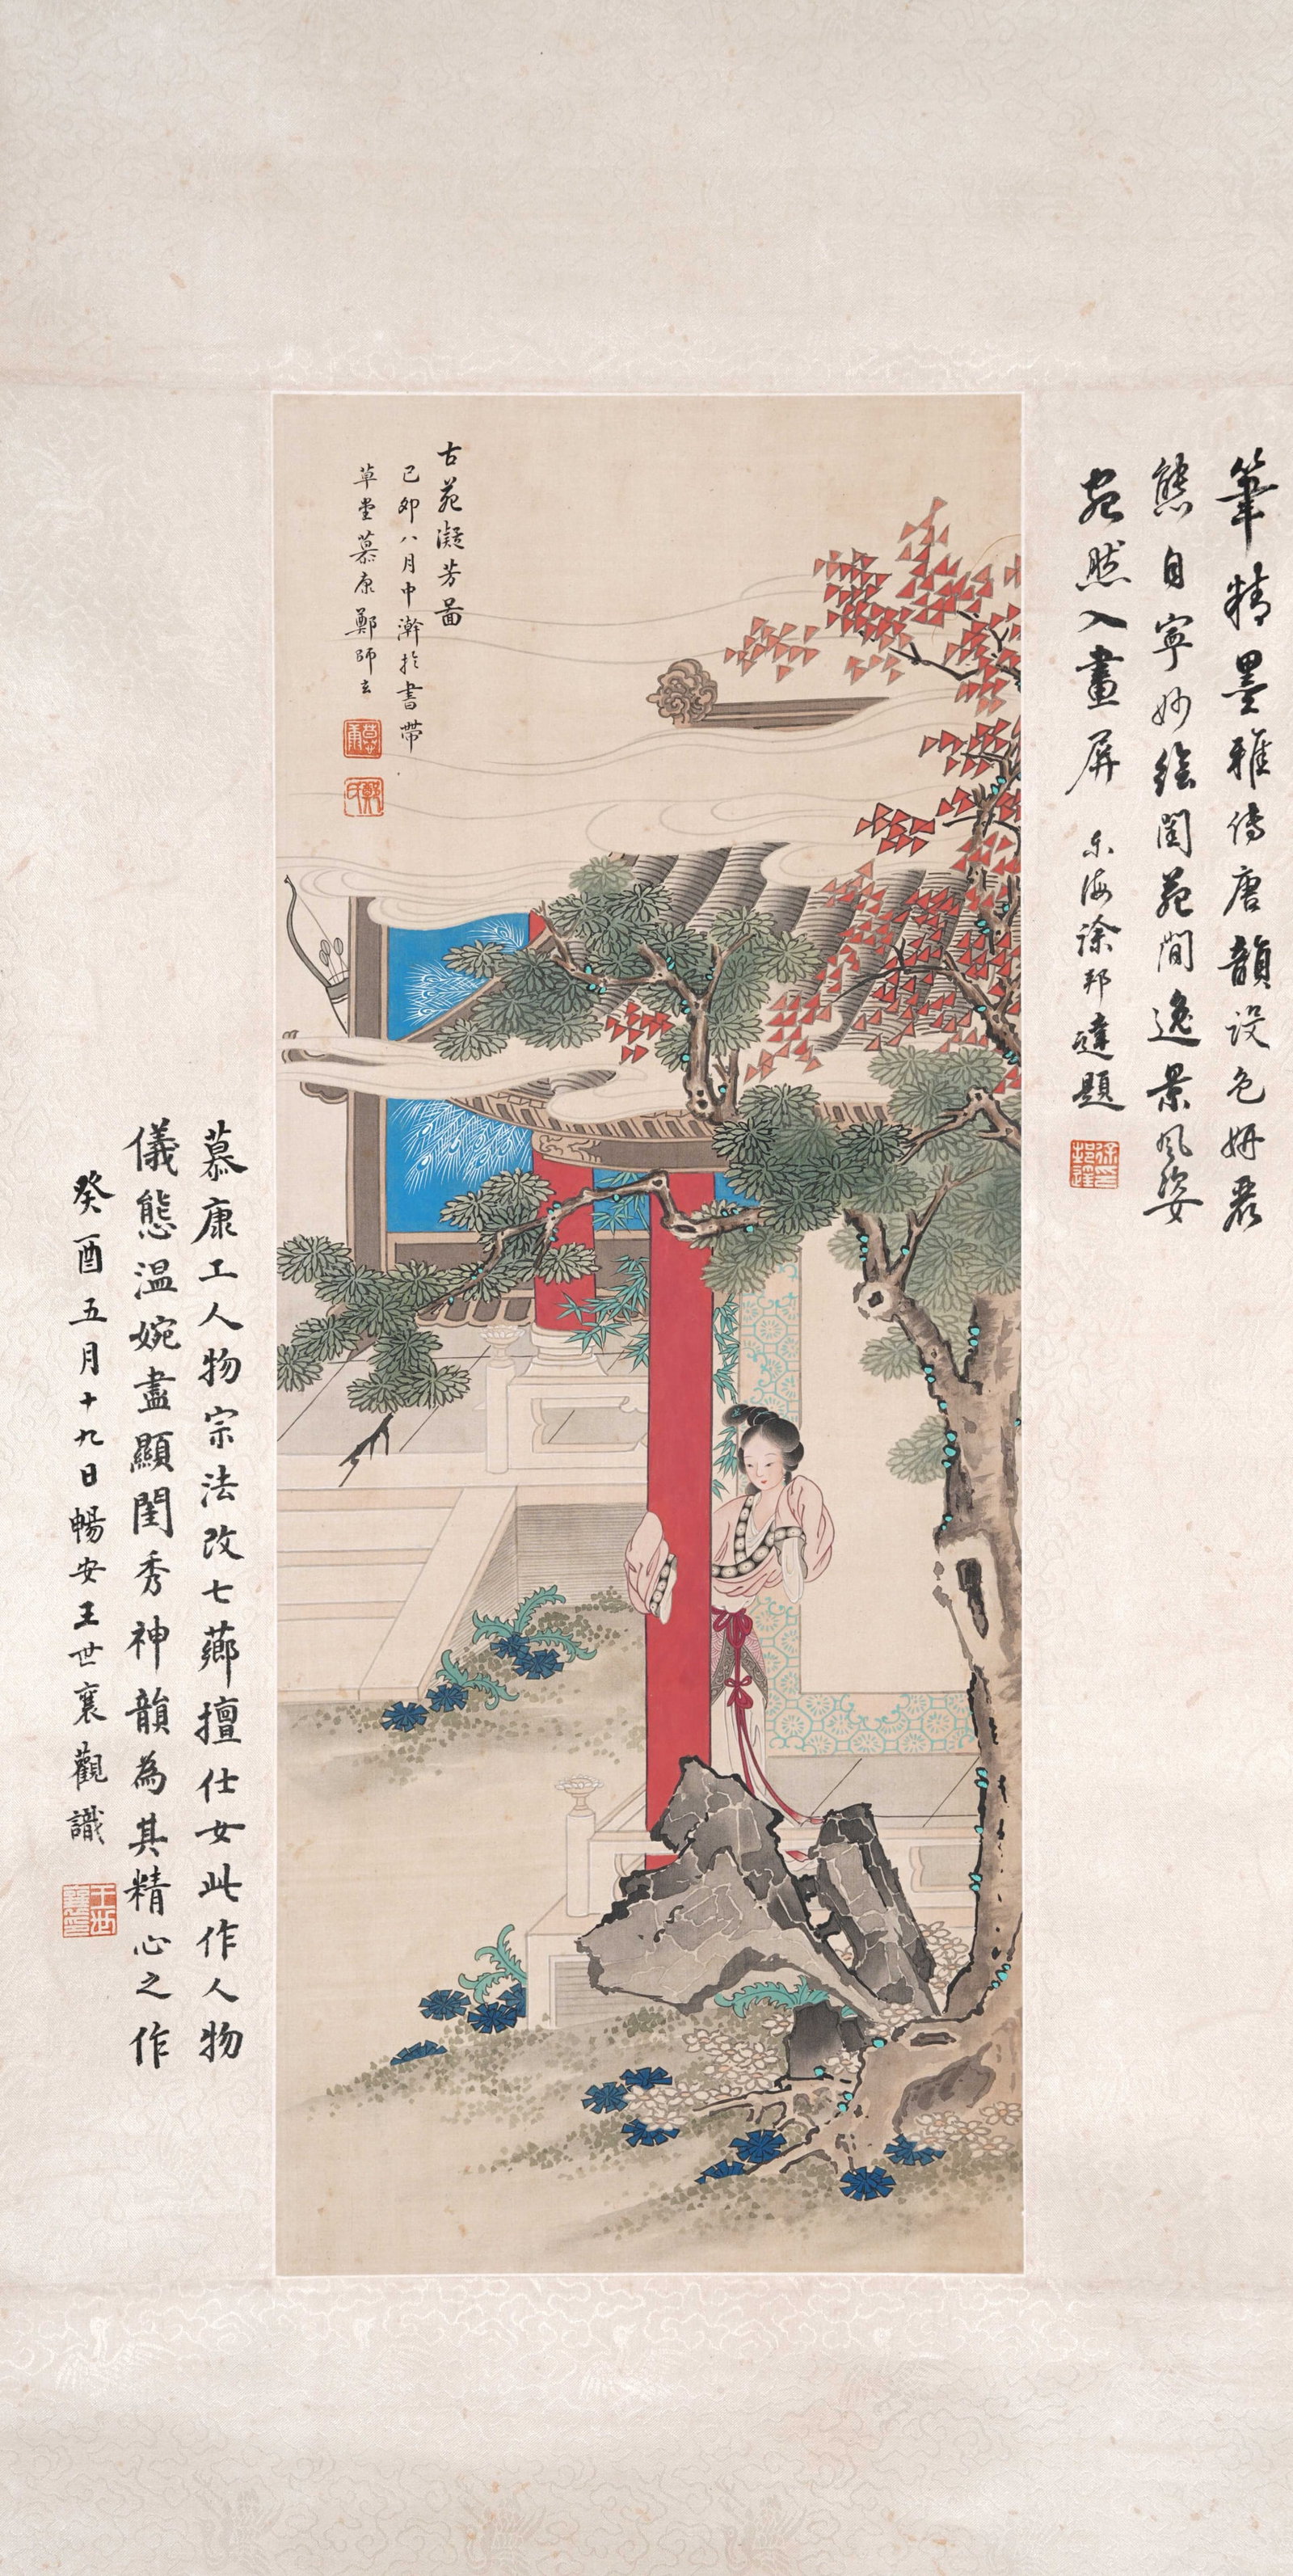 筆精墨雅傳唐韻設色妍麗
態自寧妙繪閨苑間逸景風姿
宛然入畫屏
東海徐邦達題
徐邦達
古苑凝芳圖
己卯八月中澣於書帶
草堂慕康鄭師玄
慕康
鄭氏
慕康工人物宗法改七薌擅仕女此作人物
儀態溫婉盡顯閨秀神韻為其精心之作
癸酉五月十九日暢安王世襄觀識
王世襄